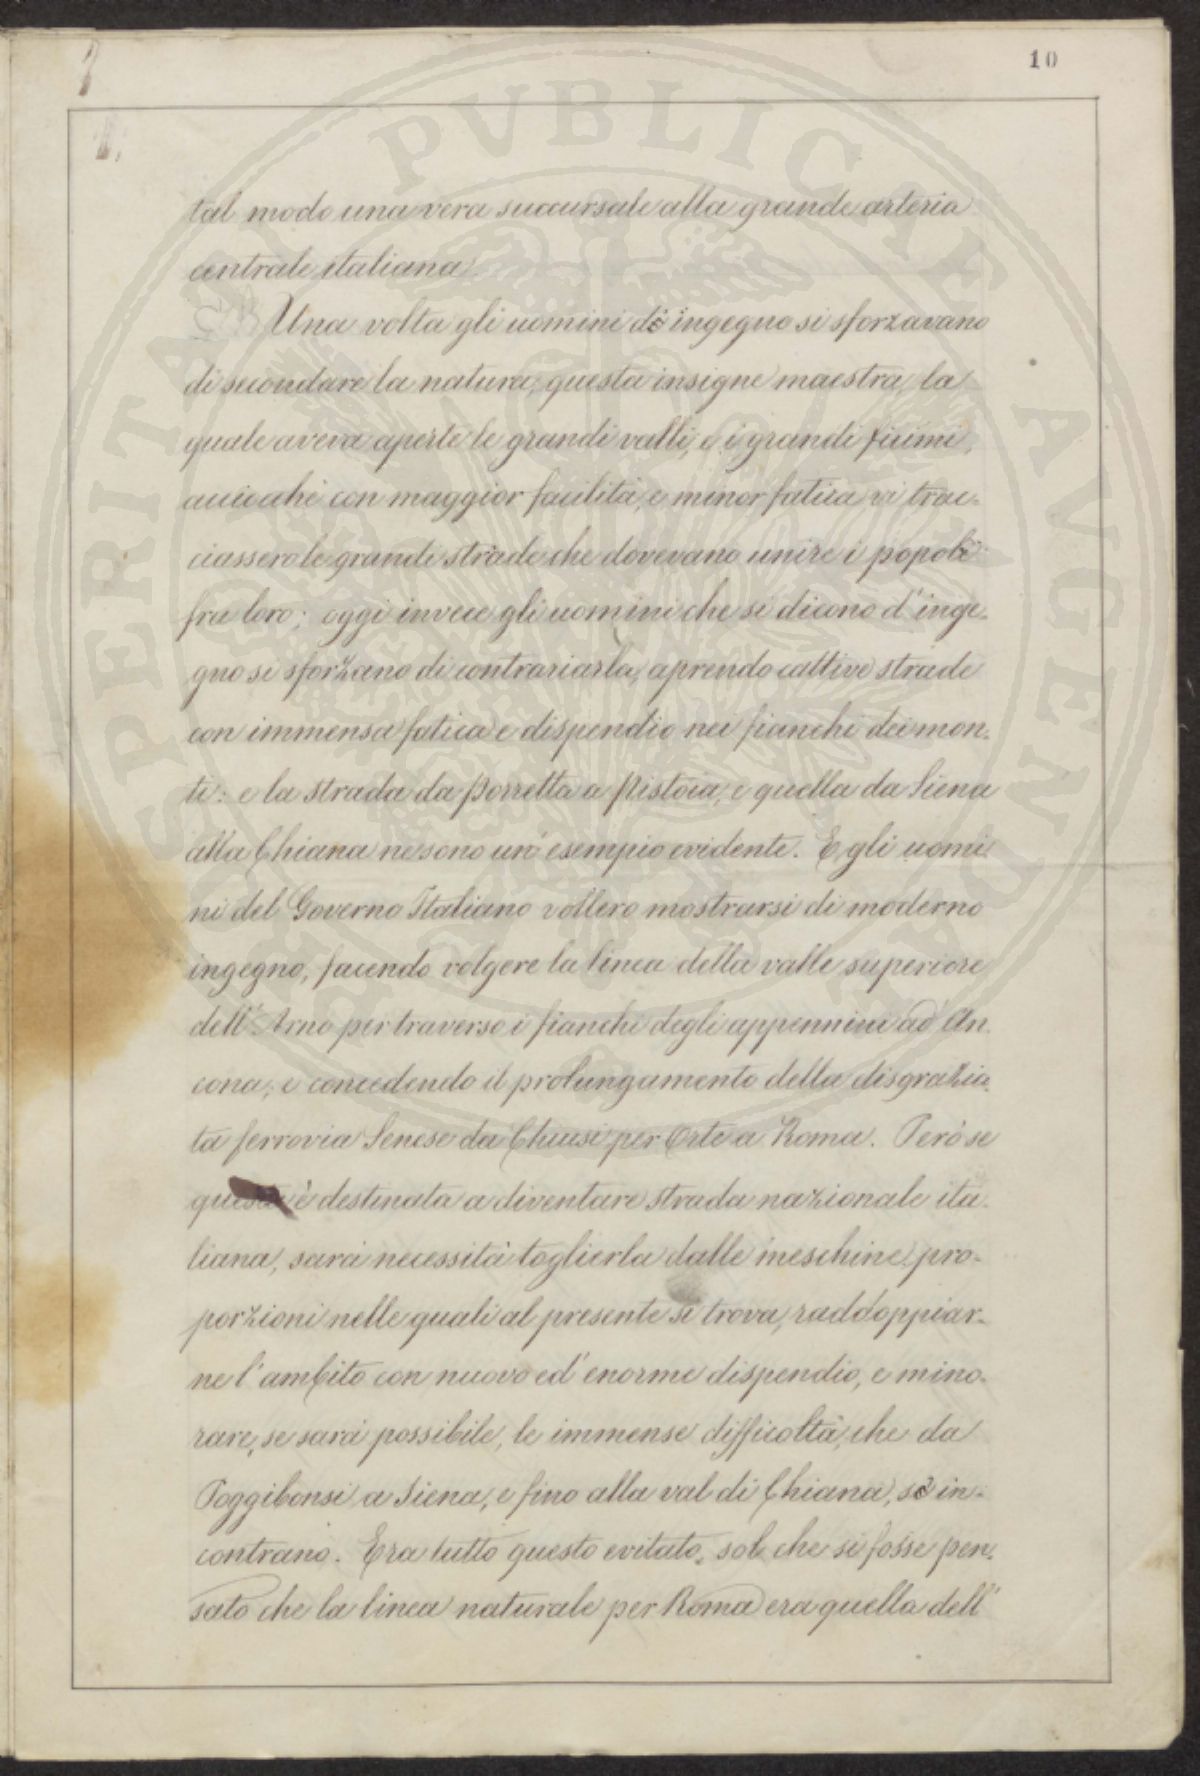 10
tal modo una vera succursale alla grande arteria
centrale italiana.
Una volta gli uomini di ingegno si sforzavano
di secondare la natura, questa insigne maestra, la
quale aveva aperte le grandi valli, e i grandi fiumi,
acciocchè con maggior facilità, e minor fatica vi trac-
ciassero le grandi strade che dovevano unire i popoli
fra loro; oggi invece gli uomini che si dicono d'inge-
gno si sforzano di contrariarla, aprendo cattive strade
con immensa fatica e dispendio nei fianchi dei mon-
ti: e la strada da Porretta a Pistoia, e quella da Siena
alla Chiana ne sono un'esempio evidente. E gli uomi-
ni del Governo Italiano vollero mostrarsi di moderno
ingegno, facendo volgere la linea della valle superiore
dell'Arno per traverso i fianchi degli appennini ad An-
cona; e concedendo il prolungamento della disgrazia-
ta ferrovia Senese da Chiusi per Orte a Roma. Però se
questa è destinata a diventare strada nazionale ita-
liana, sarà necessità toglierla dalle meschine pro-
porzioni nelle quali al presente si trova, raddoppiar-
ne l'ambito con nuovo ed'enorme dispendio, e mino-
rare, se sarà possibile, le immense difficoltà, che da
Poggibonsi a Siena, e fino alla val di Chiana, si in-
contrano. Era tutto questo evitato, sol che si fosse pen-
sato che la linea naturale per Roma era quella dell'
PROSPERITATI PVBLICAE AVGENDAE